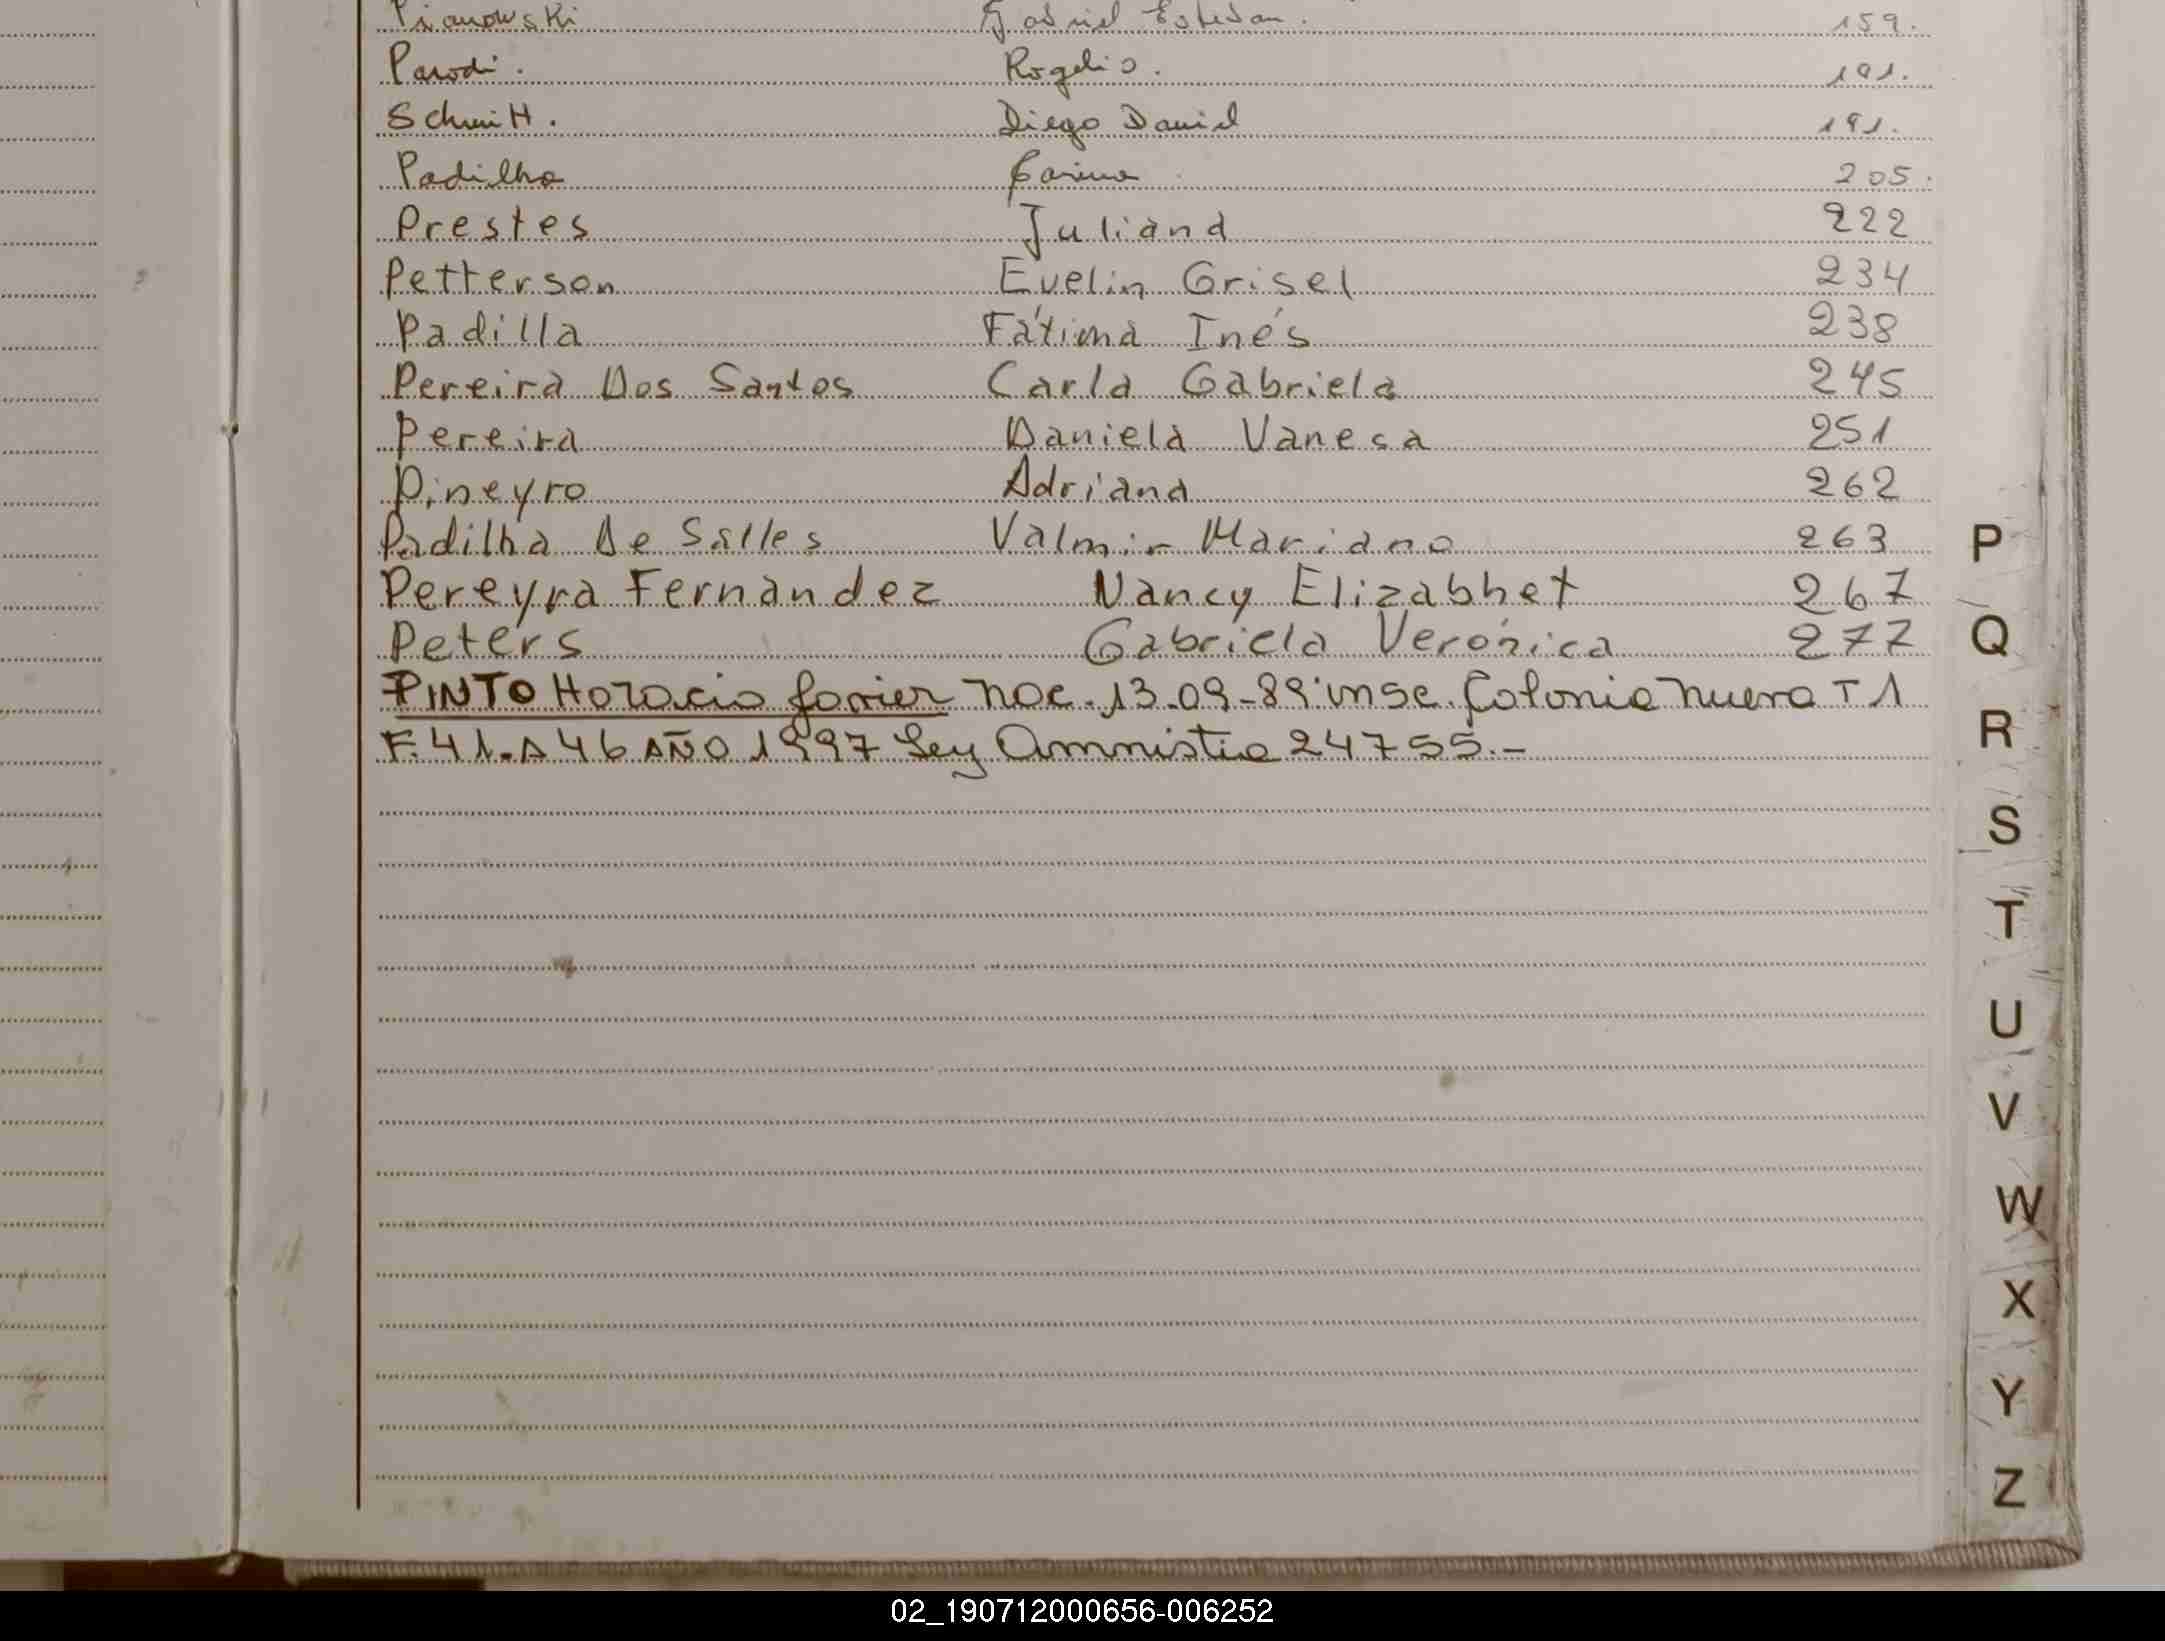 Pianowski Gabriel Esteban. 159.
Parodi. Rogelio. 191.
Schmitt. Diego Daniel 191.
Padilha Carina 205.
Prestes Juliana 222
Petterson Evelin Grisel 234
Padilla Fátima Inés 238
Pereira Dos Santos Carla Gabriela 245
Pereira Daniela Vanesa 251
Pineyro Adriana 262
Padilha De Salles Valmir Mariano 263
P
Pereyra Fernandez Nancy Elizabhet 267
Peters Gabriela Verónica 277
Q
PINTO Horacio Javier nac. 13-09-89 insc. Colonia Nueva T 1
R
F. 41. A 46 AÑO 1997 Ley Amnistia 24755.-
S
T
U
V
W
X
Y
Z
02_190712000656-006252